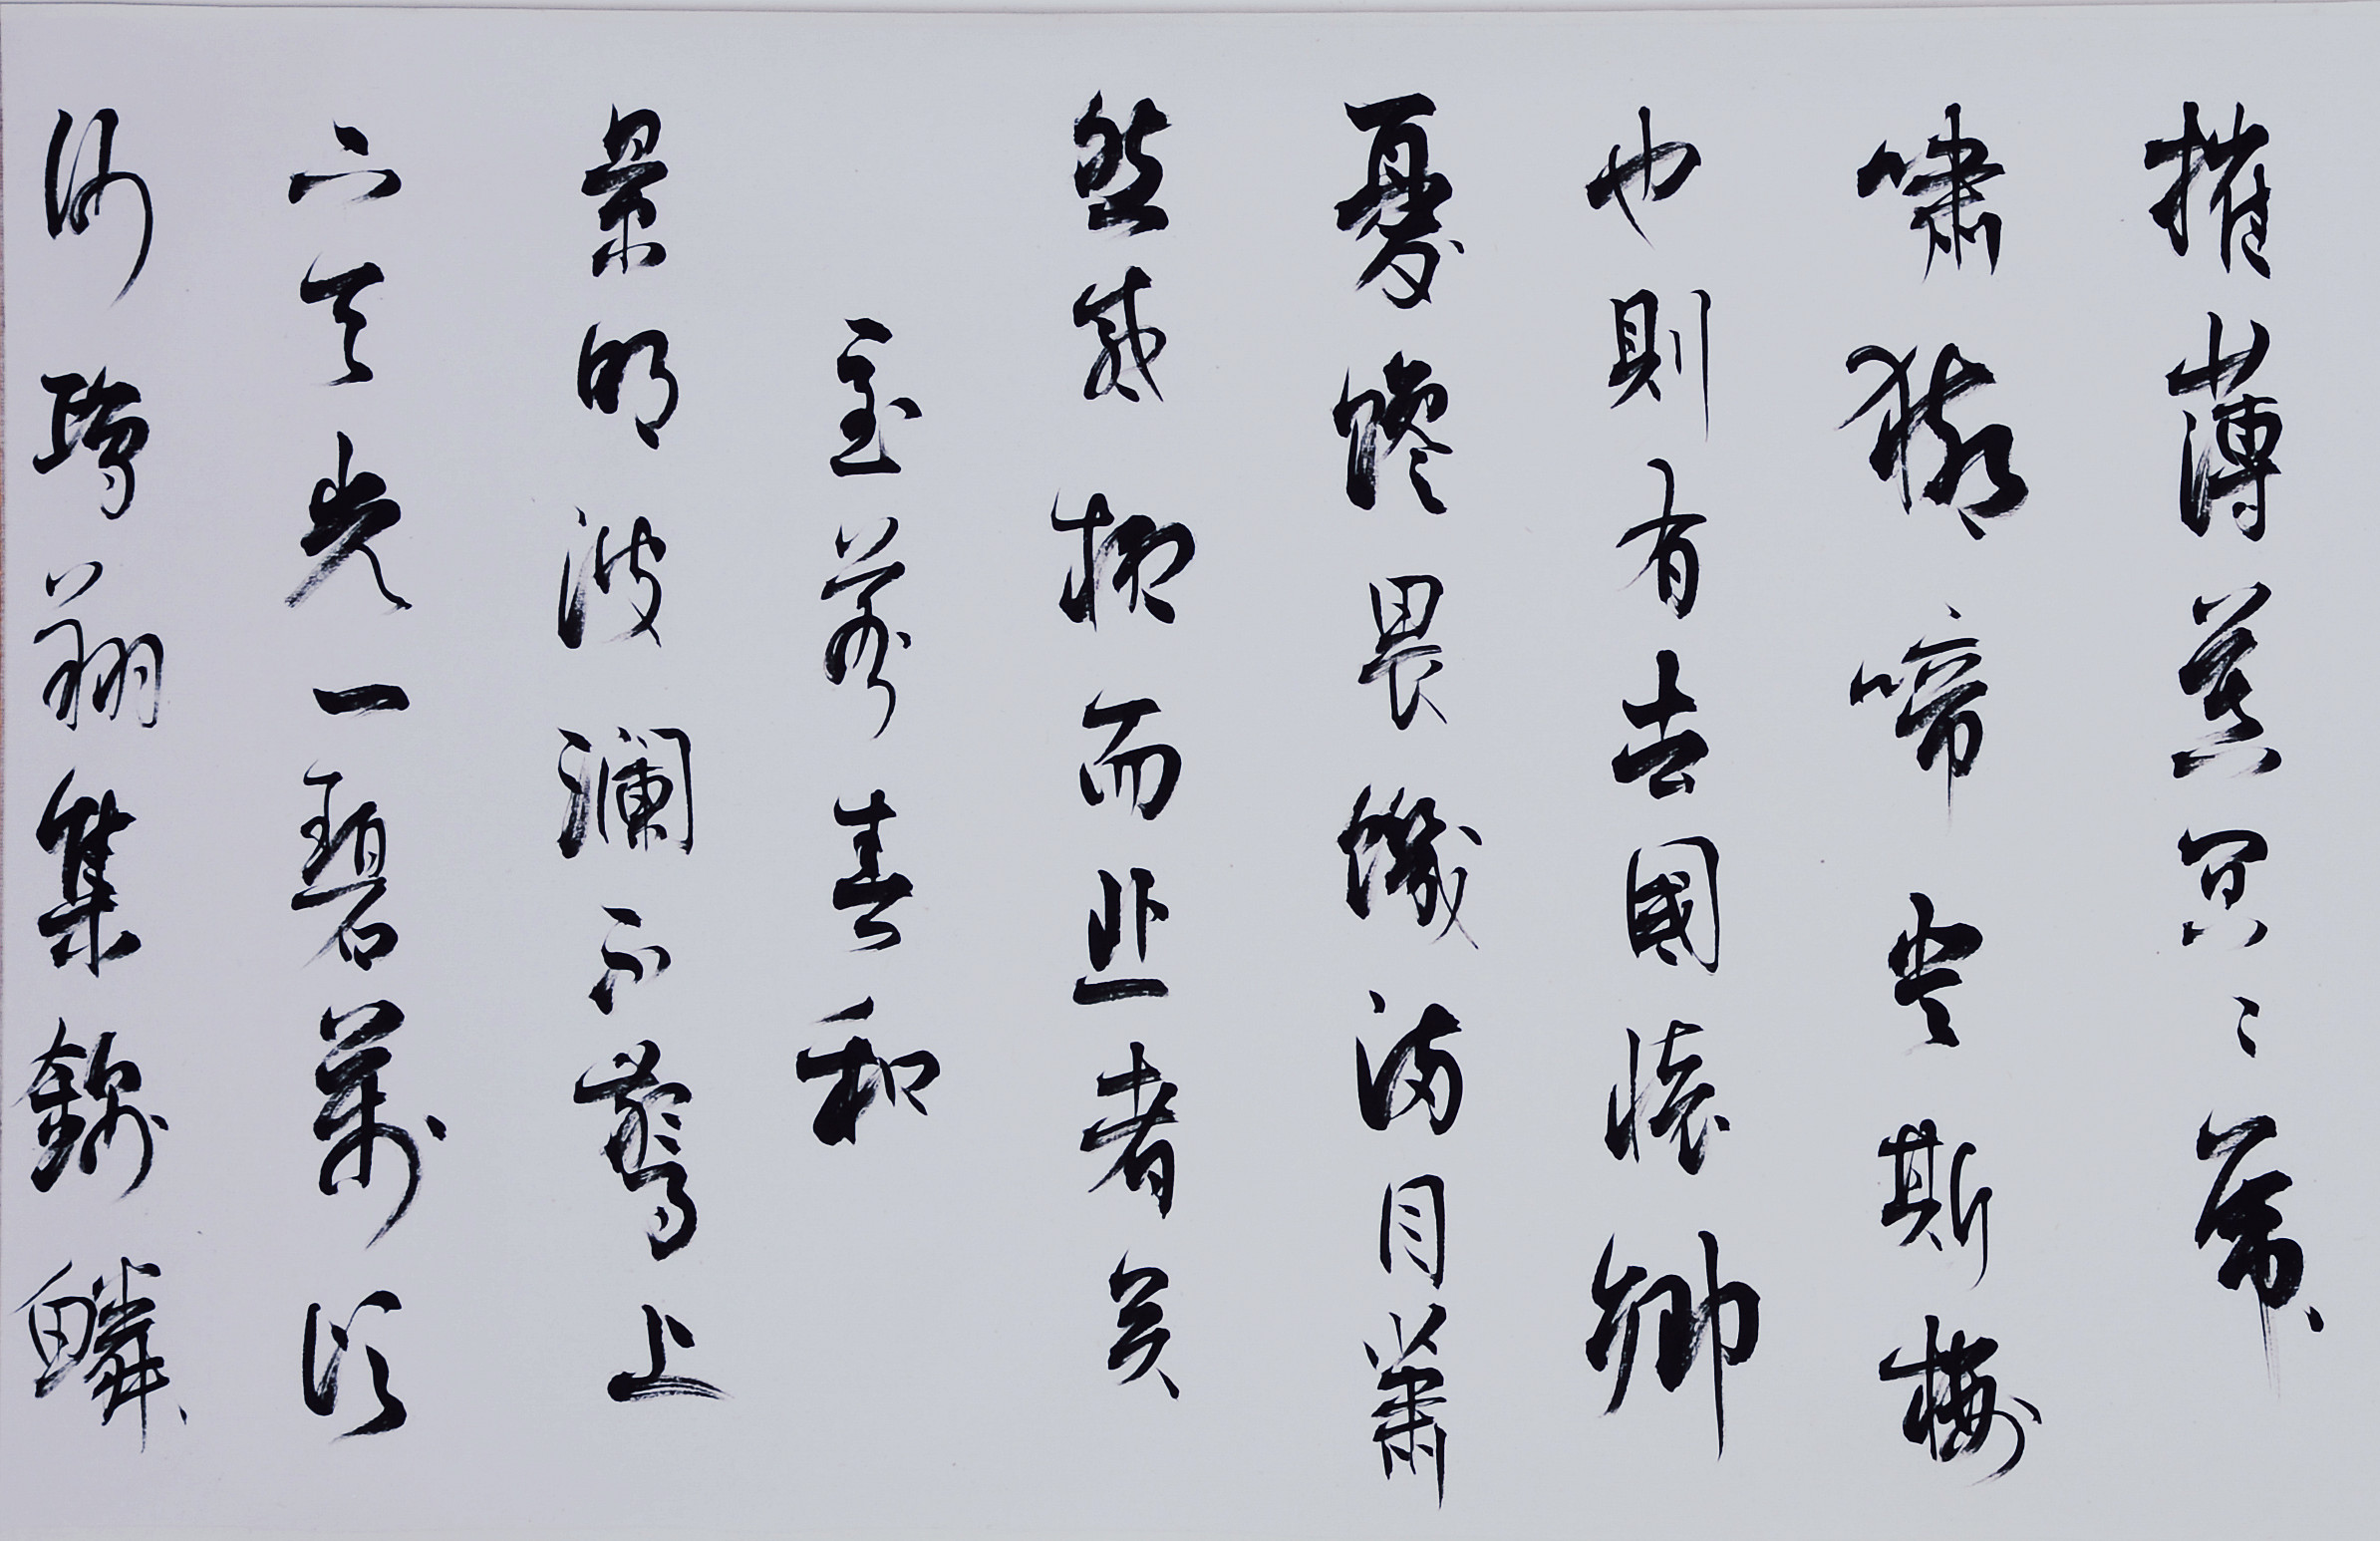 摧薄暮冥〻虎
嘯猿啼登斯樓
也則有去國懷鄉
憂讒畏譏滿目蕭
然感極而悲者矣
至若春和
景明波瀾不驚上
下天光一碧萬頃
沙鷗翔集錦鱗